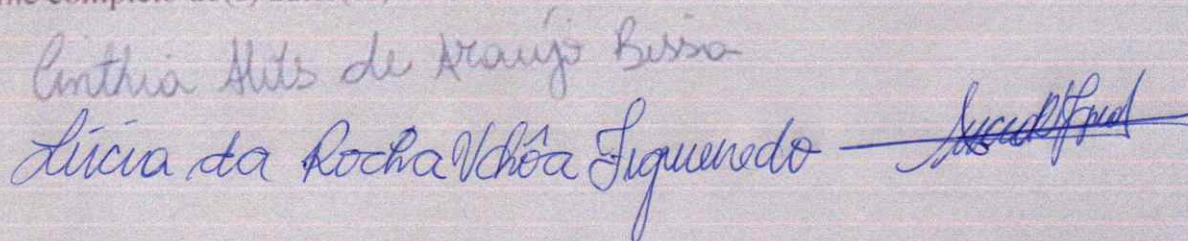 Cinthia Alits de Araújo Bessa
Lúcia da Rocha Uchôa Figueiredo